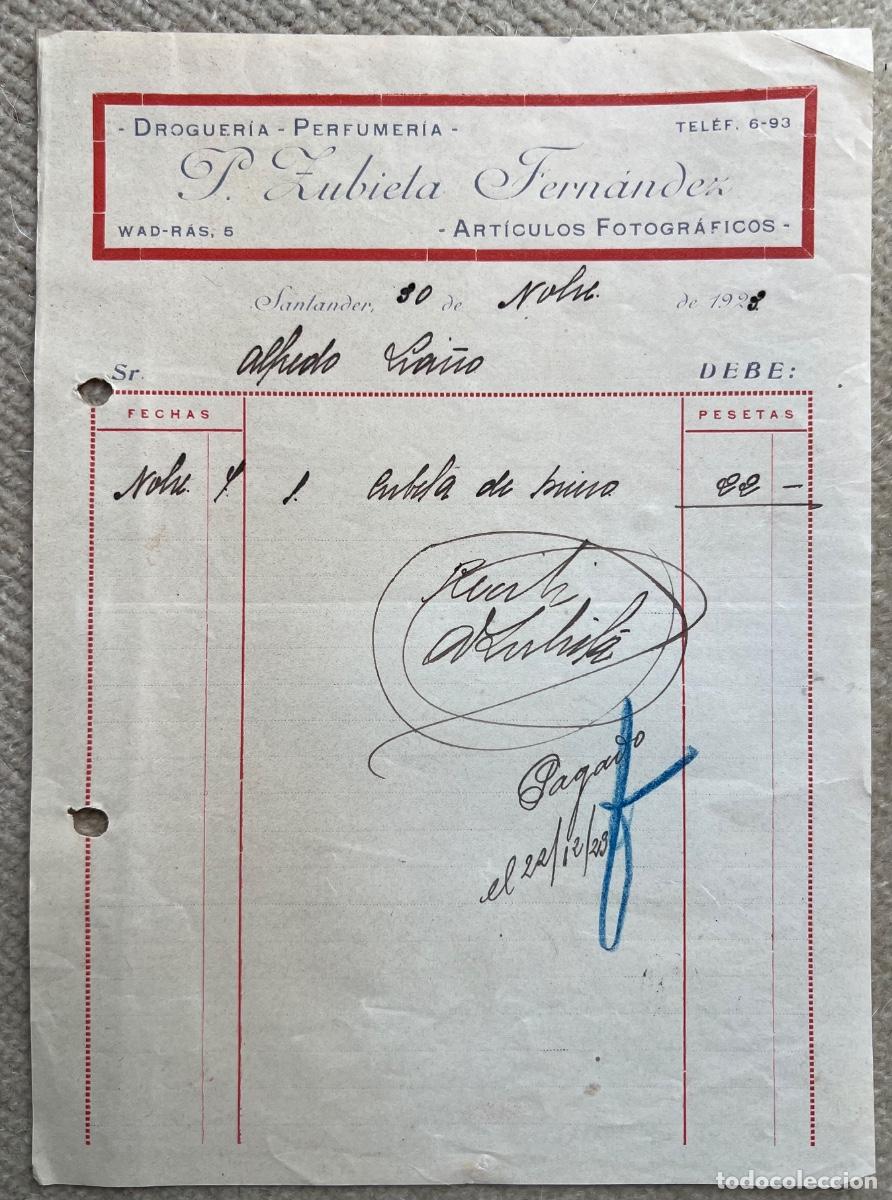 - DROGUERÍA - PERFUMERÍA -
TELÉF. 6-93
P. Zubieta Fernández
WAD-RÁS, 5
- ARTÍCULOS FOTOGRÁFICOS -
Santander, 30 de Nobre. de 1923.
Sr. Alfredo Liaño
DEBE:
FECHAS
PESETAS
Nobre. 1 cubeta de 22 -
Recibí
Zubieta
Pagado
el 22/12/23
todocoleccion